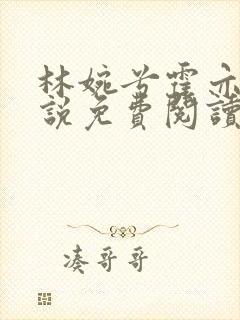 林婉兮霍亦
說免費閱讀
凑哥哥